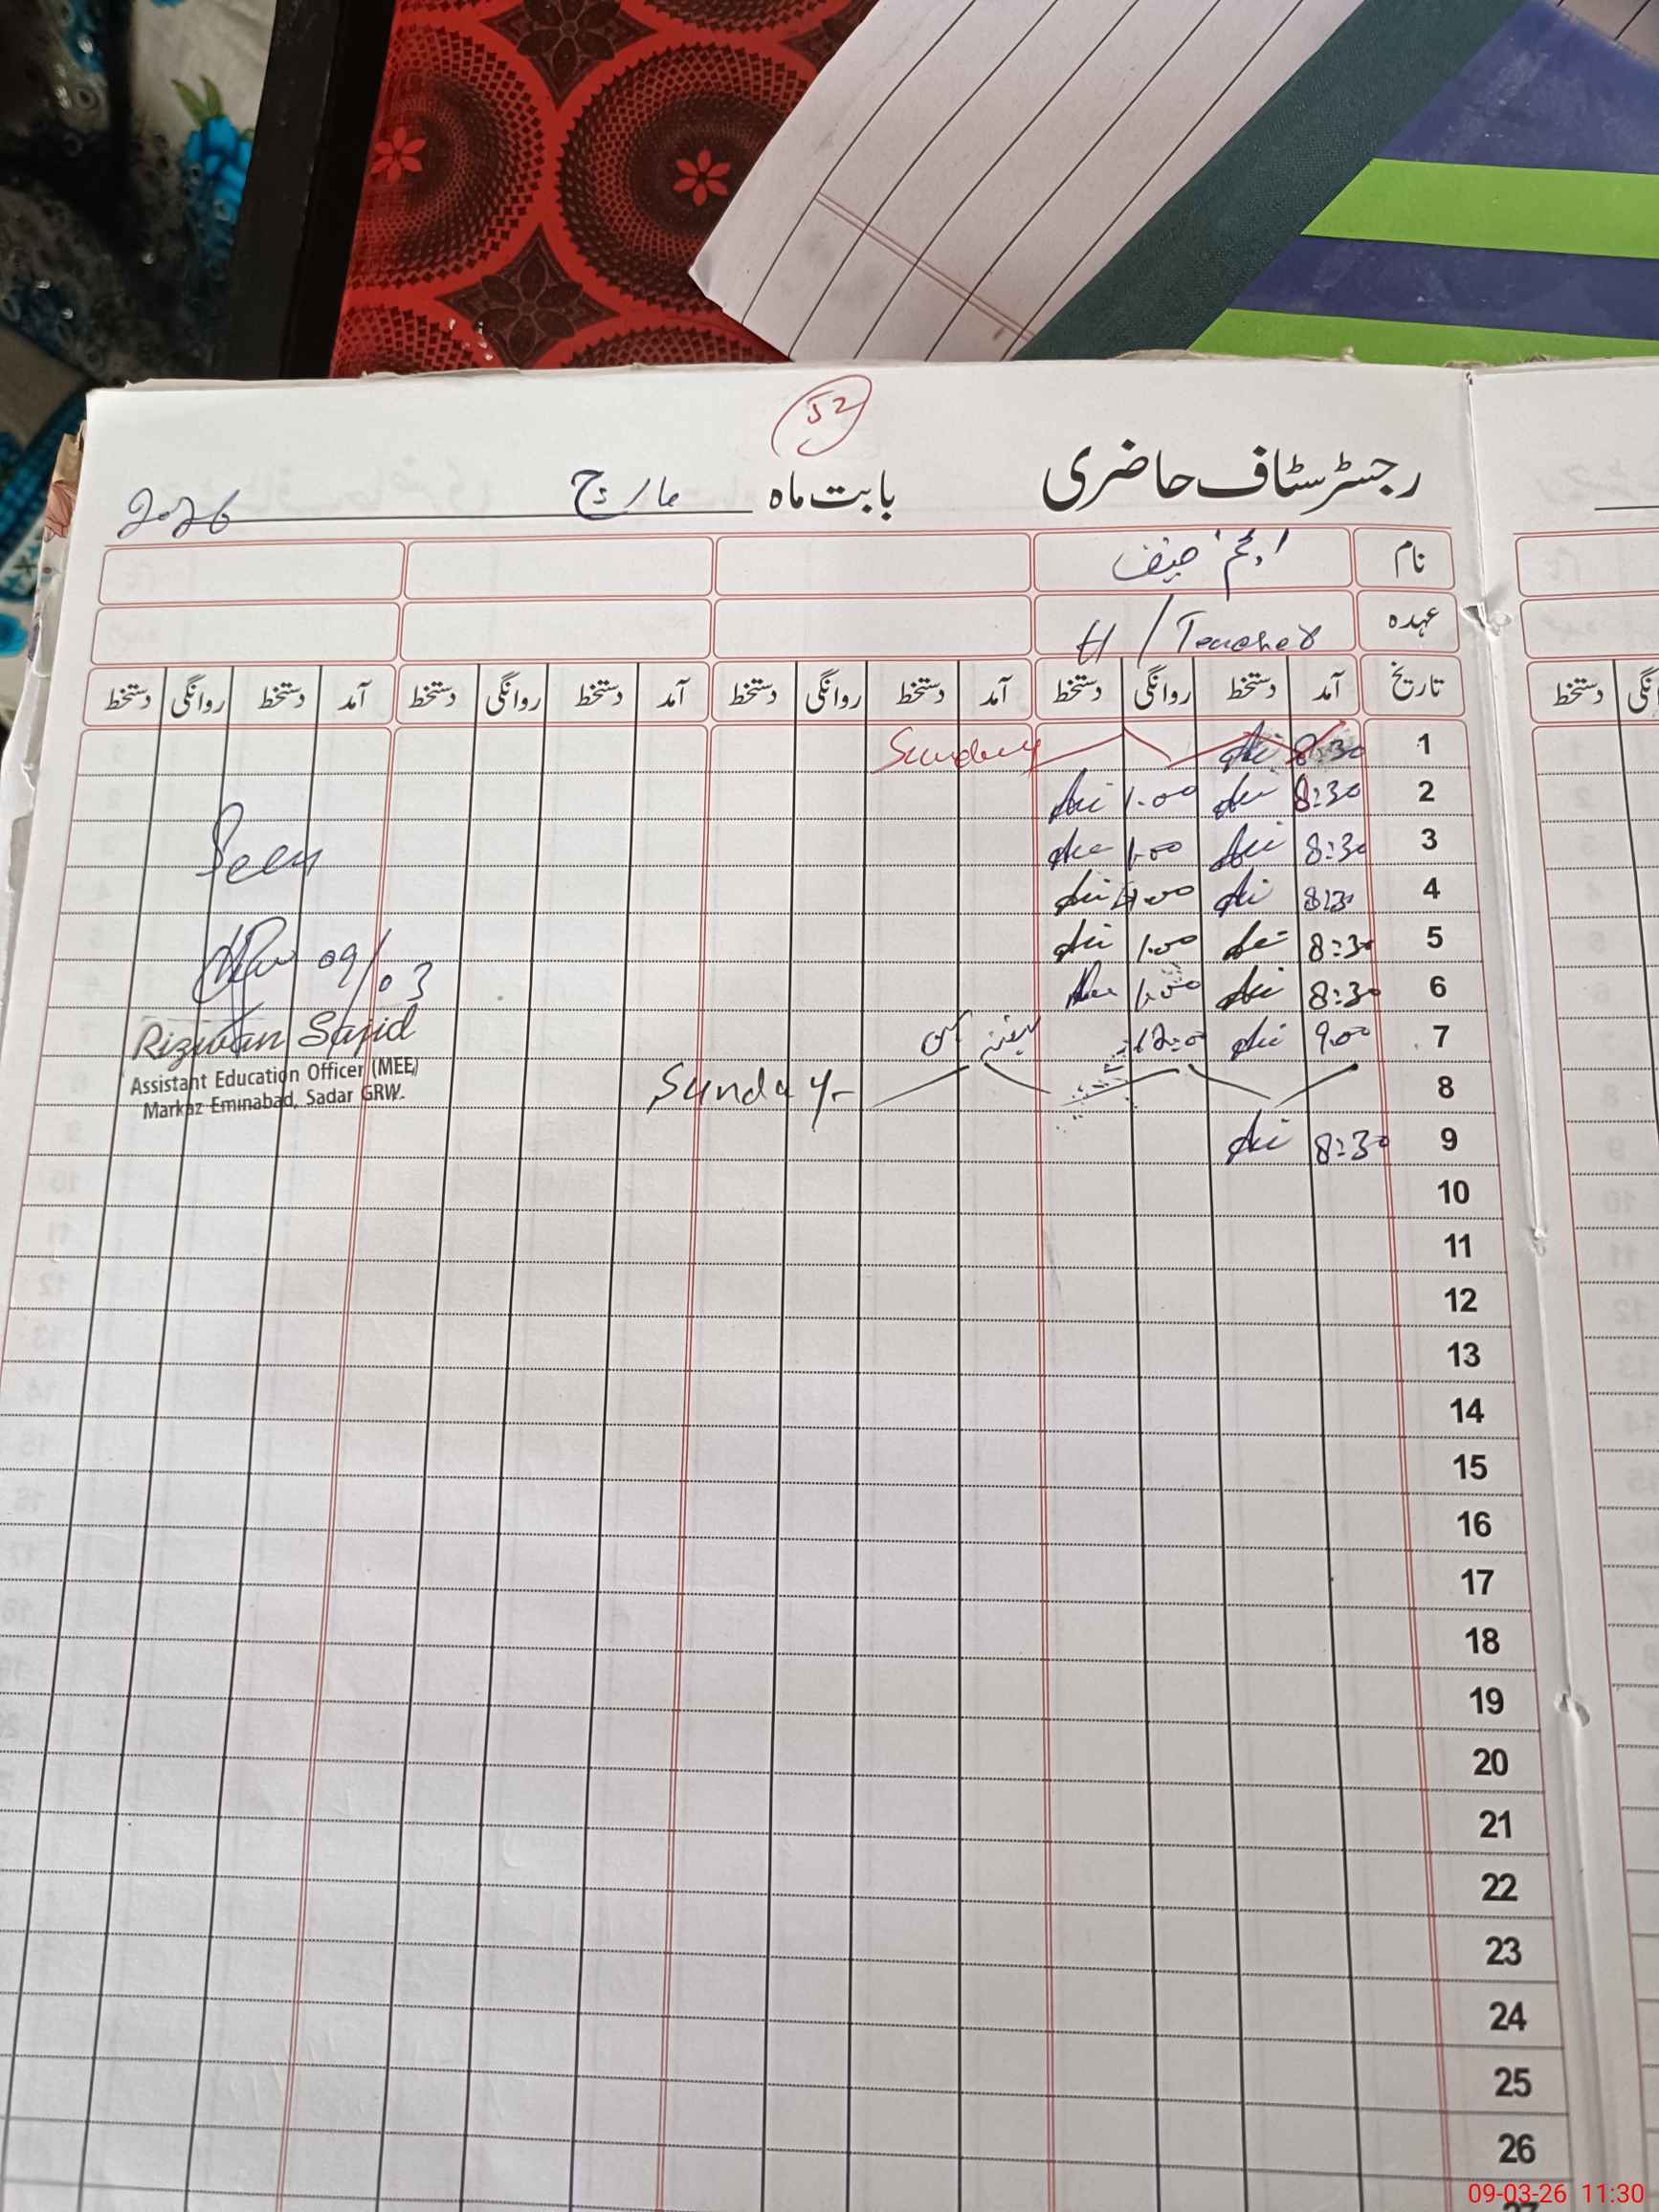 52
رجسٹر سٹاف حاضری بابت ماہ مارچ 2026
نام انجم حنیف
عہدہ H/Teacher
تاریخ آمد دستخط روانگی دستخط آمد دستخط روانگی دستخط آمد دستخط روانگی دستخط آمد دستخط روانگی دستخط
1 8:30 Sunday
2 8:30 1.00
3 8:30 1.00
4 8:30 1.00
5 8:30 1.00
6 8:30 1.00
7 9.00 12:00
8 Sunday
9 8:30
10
11
12
13
14
15
16
17
18
19
20
21
22
23
24
25
26
27
Seen
09/03
Rizwan Sajid
Assistant Education Officer (MEE)
Markaz Eminabad, Sadar GRW.
دستخط
09-03-26 11:30